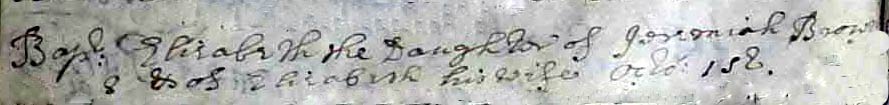 Bap: Elizabeth the Daughter of Jeremiah Brow
& of Elizabeth his wife Octo: 18t.